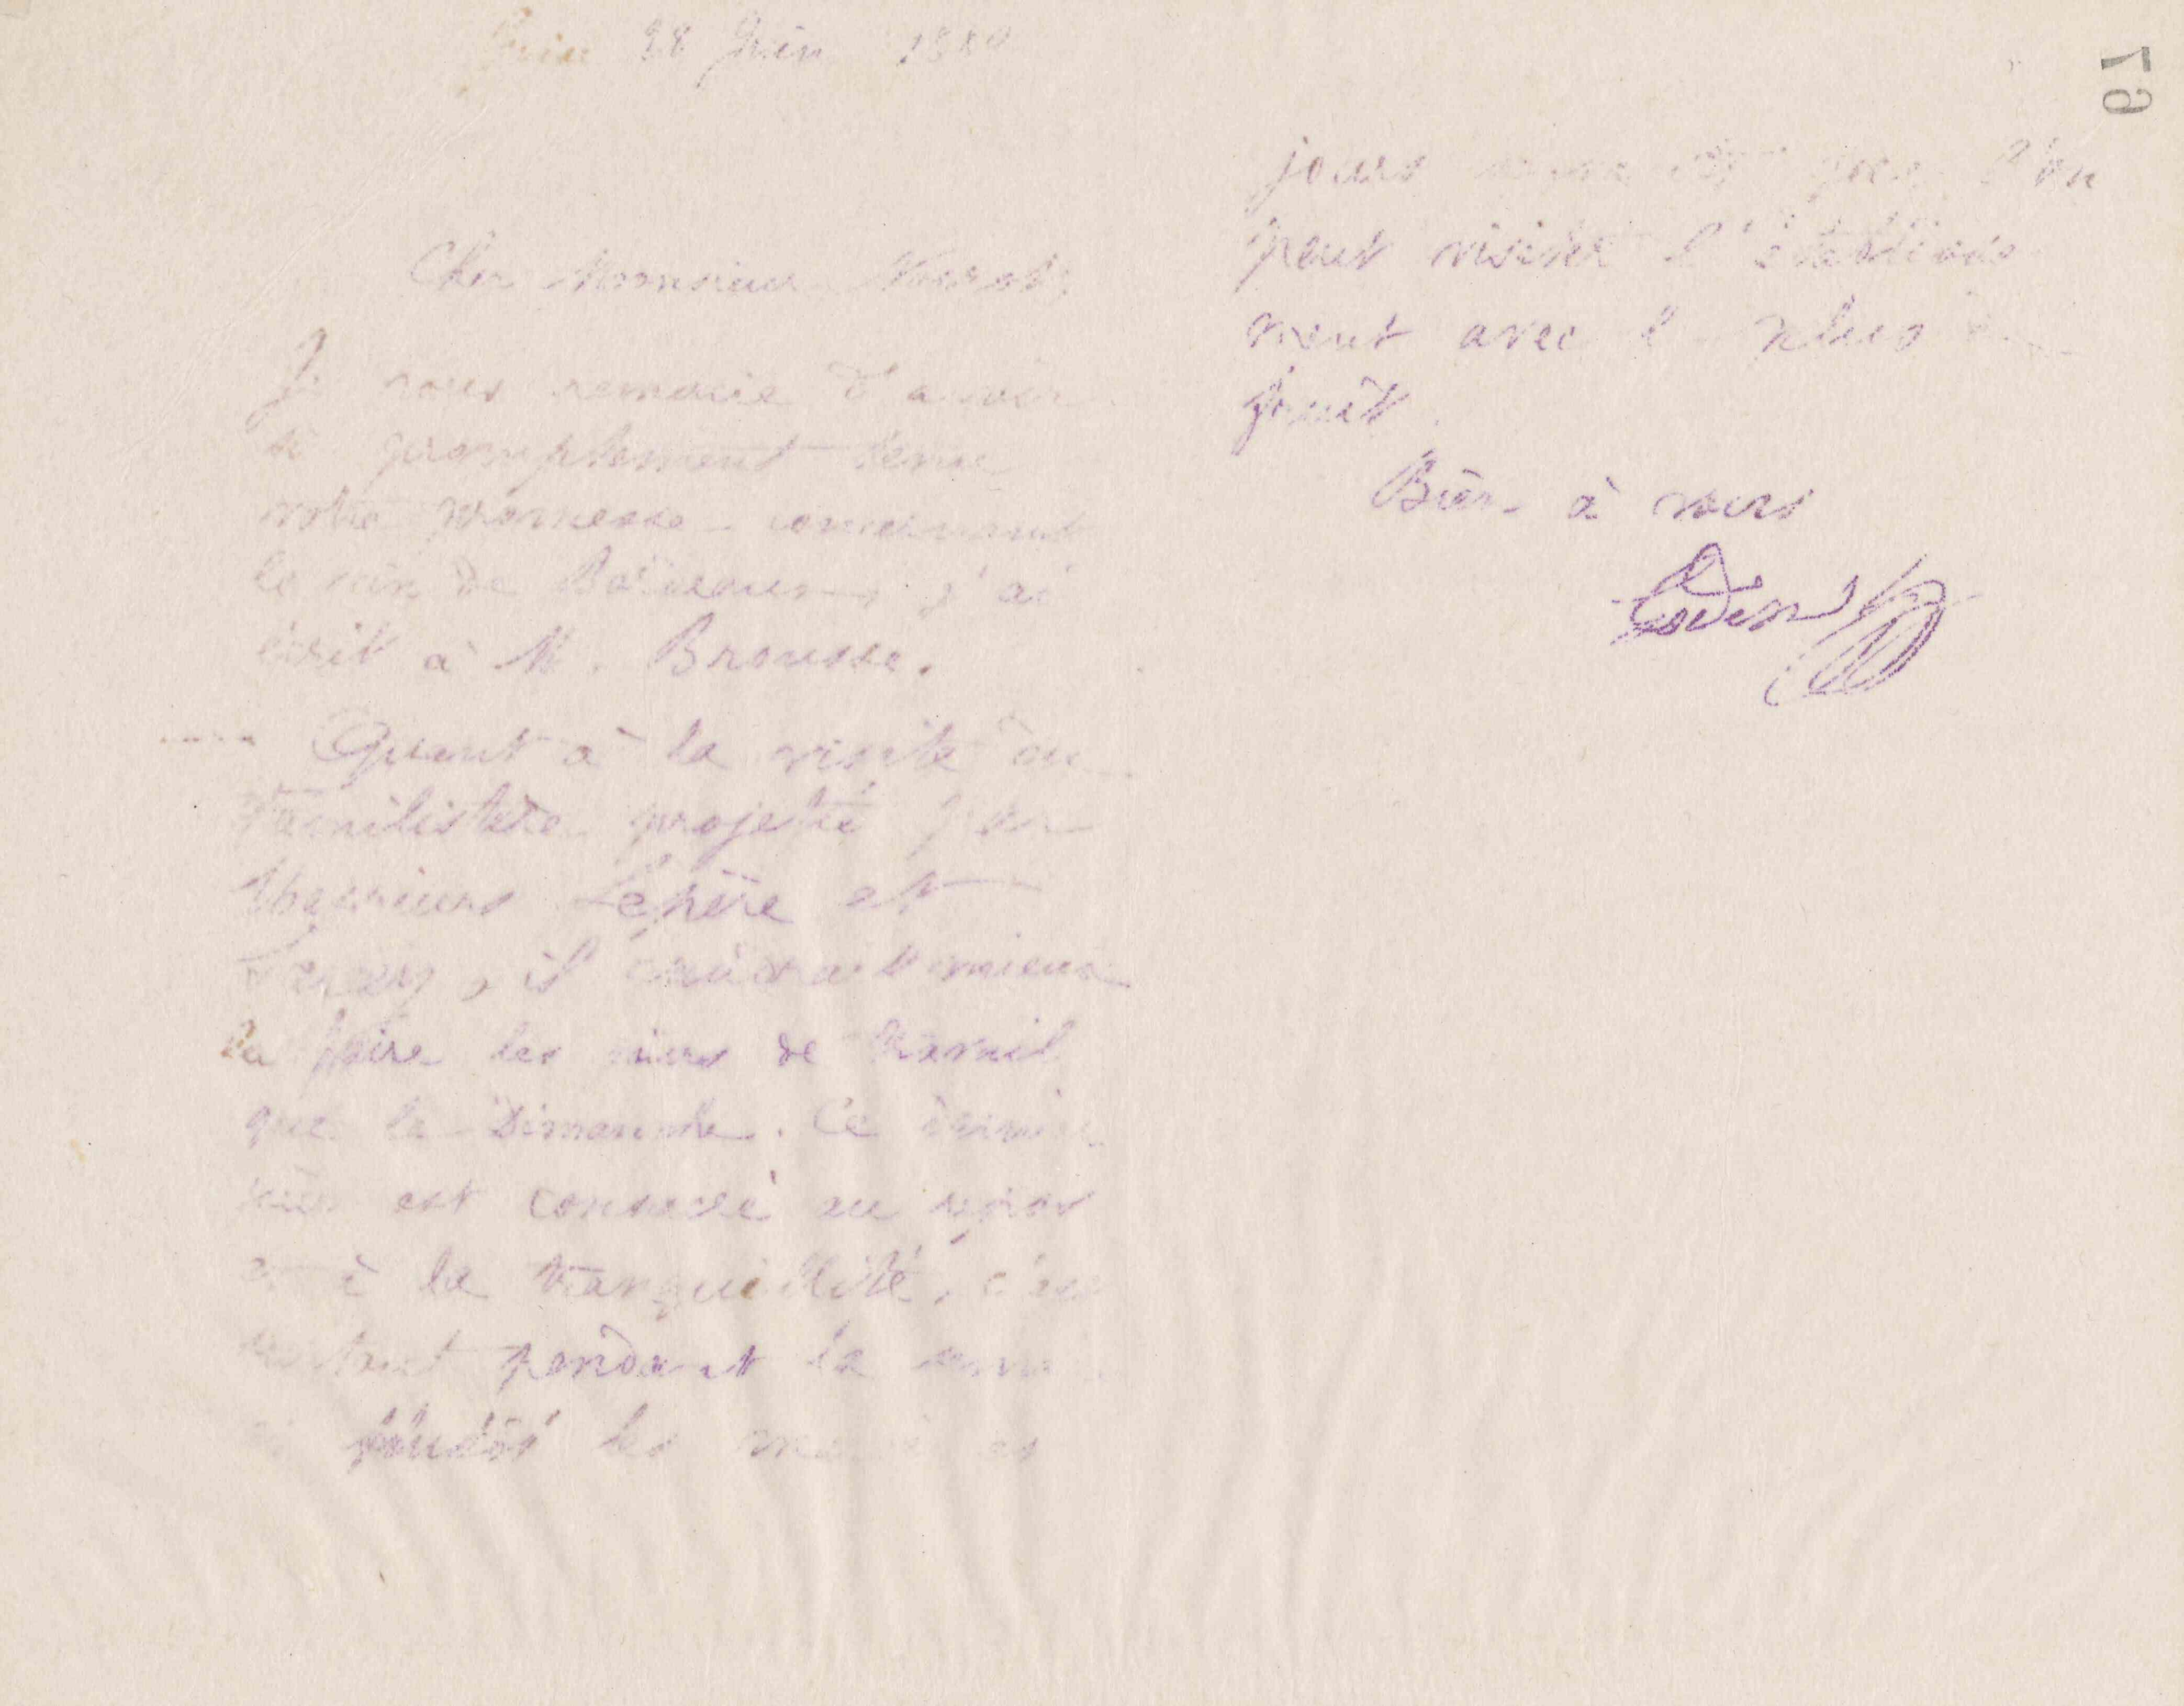 28 Juin 1880
Cher Monsieur
Je vous remercie d'avoir
si promptement tenu
votre promesse concernant
le vin de Bordeaux, j'ai
écrit à M. Brousse.
Quant à la visite du
familistère projetée par
Messieurs Lepère et
il vaudrait mieux
la faire les jours de travail
que le Dimanche. Ce dernier
jour est consacré au repos
et à la tranquillité, c'est
surtout pendant la
plutôt les
jours que l'on
peut visiter l'établisse
ment avec le plus de
fruit.
Bien à vous
Godin
79